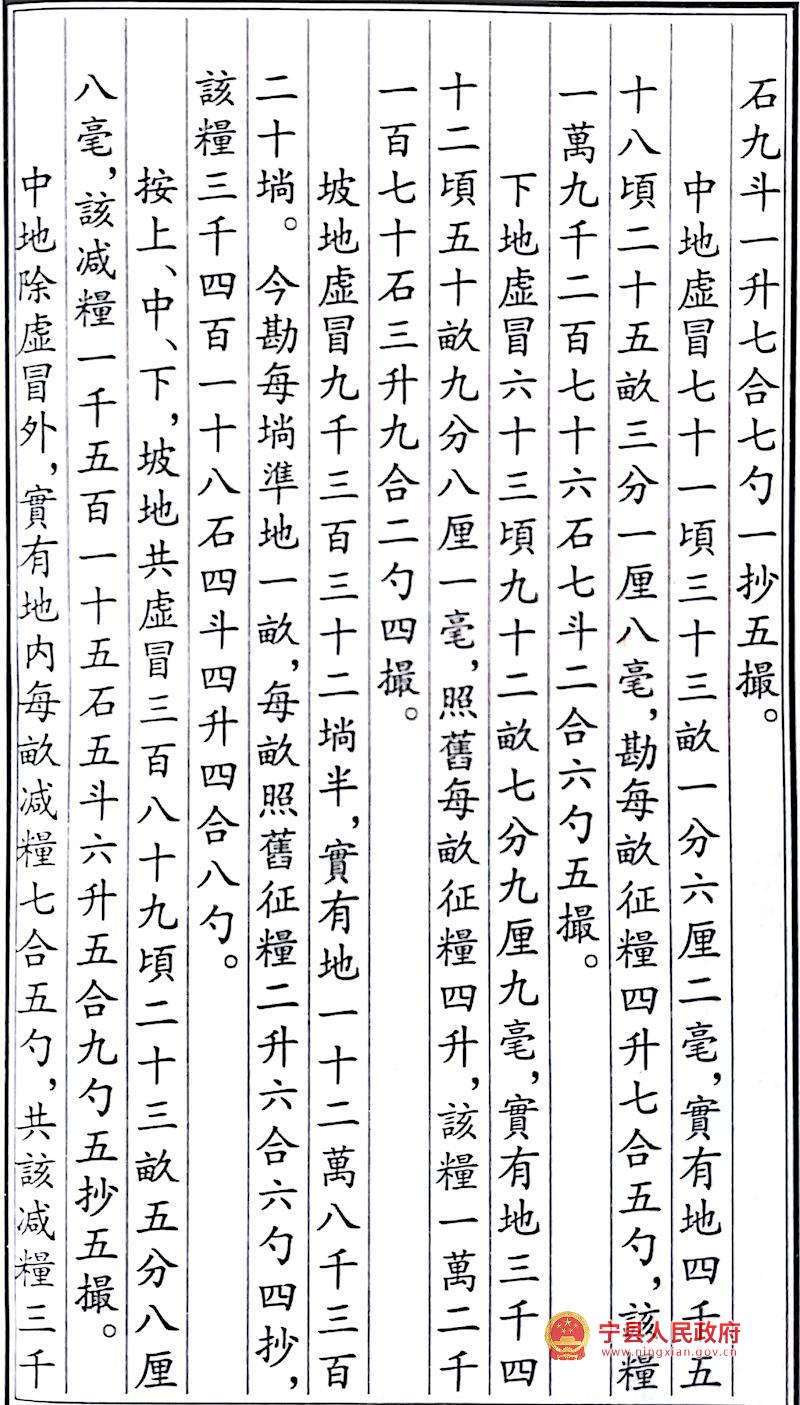 石九斗一升七合七勺一抄五撮。
中地虛冒七十一頃三十三畝一分六厘二毫，實有地四千五
十八頃二十五畝三分一厘八毫，勘每畝征糧四升七合五勺，該糧
一萬九千二百七十六石七斗二合六勺五撮。
下地虛冒六十三頃九十二畝七分九厘九毫，實有地三千四
十二頃五十畝九分八厘一毫，照舊每畝征糧四升，該糧一萬二千
一百七十石三升九合二勺四撮。
坡地虛冒九千三百三十二塲半，實有地一十二萬八千三百
二十塲。今勘每塲準地一畝，每畝照舊征糧二升六合六勺四抄，
該糧三千四百一十八石四斗四升四合八勺。
按上、中、下，坡地共虛冒三百八十九頃二十三畝五分八厘
八毫，該減糧一千五百一十五石五斗六升五合九勺五抄五撮。
中地除虛冒外，實有地内每畝減糧七合五勺，共該減糧三千
宁县人民政府
www.ningxian.gov.cn